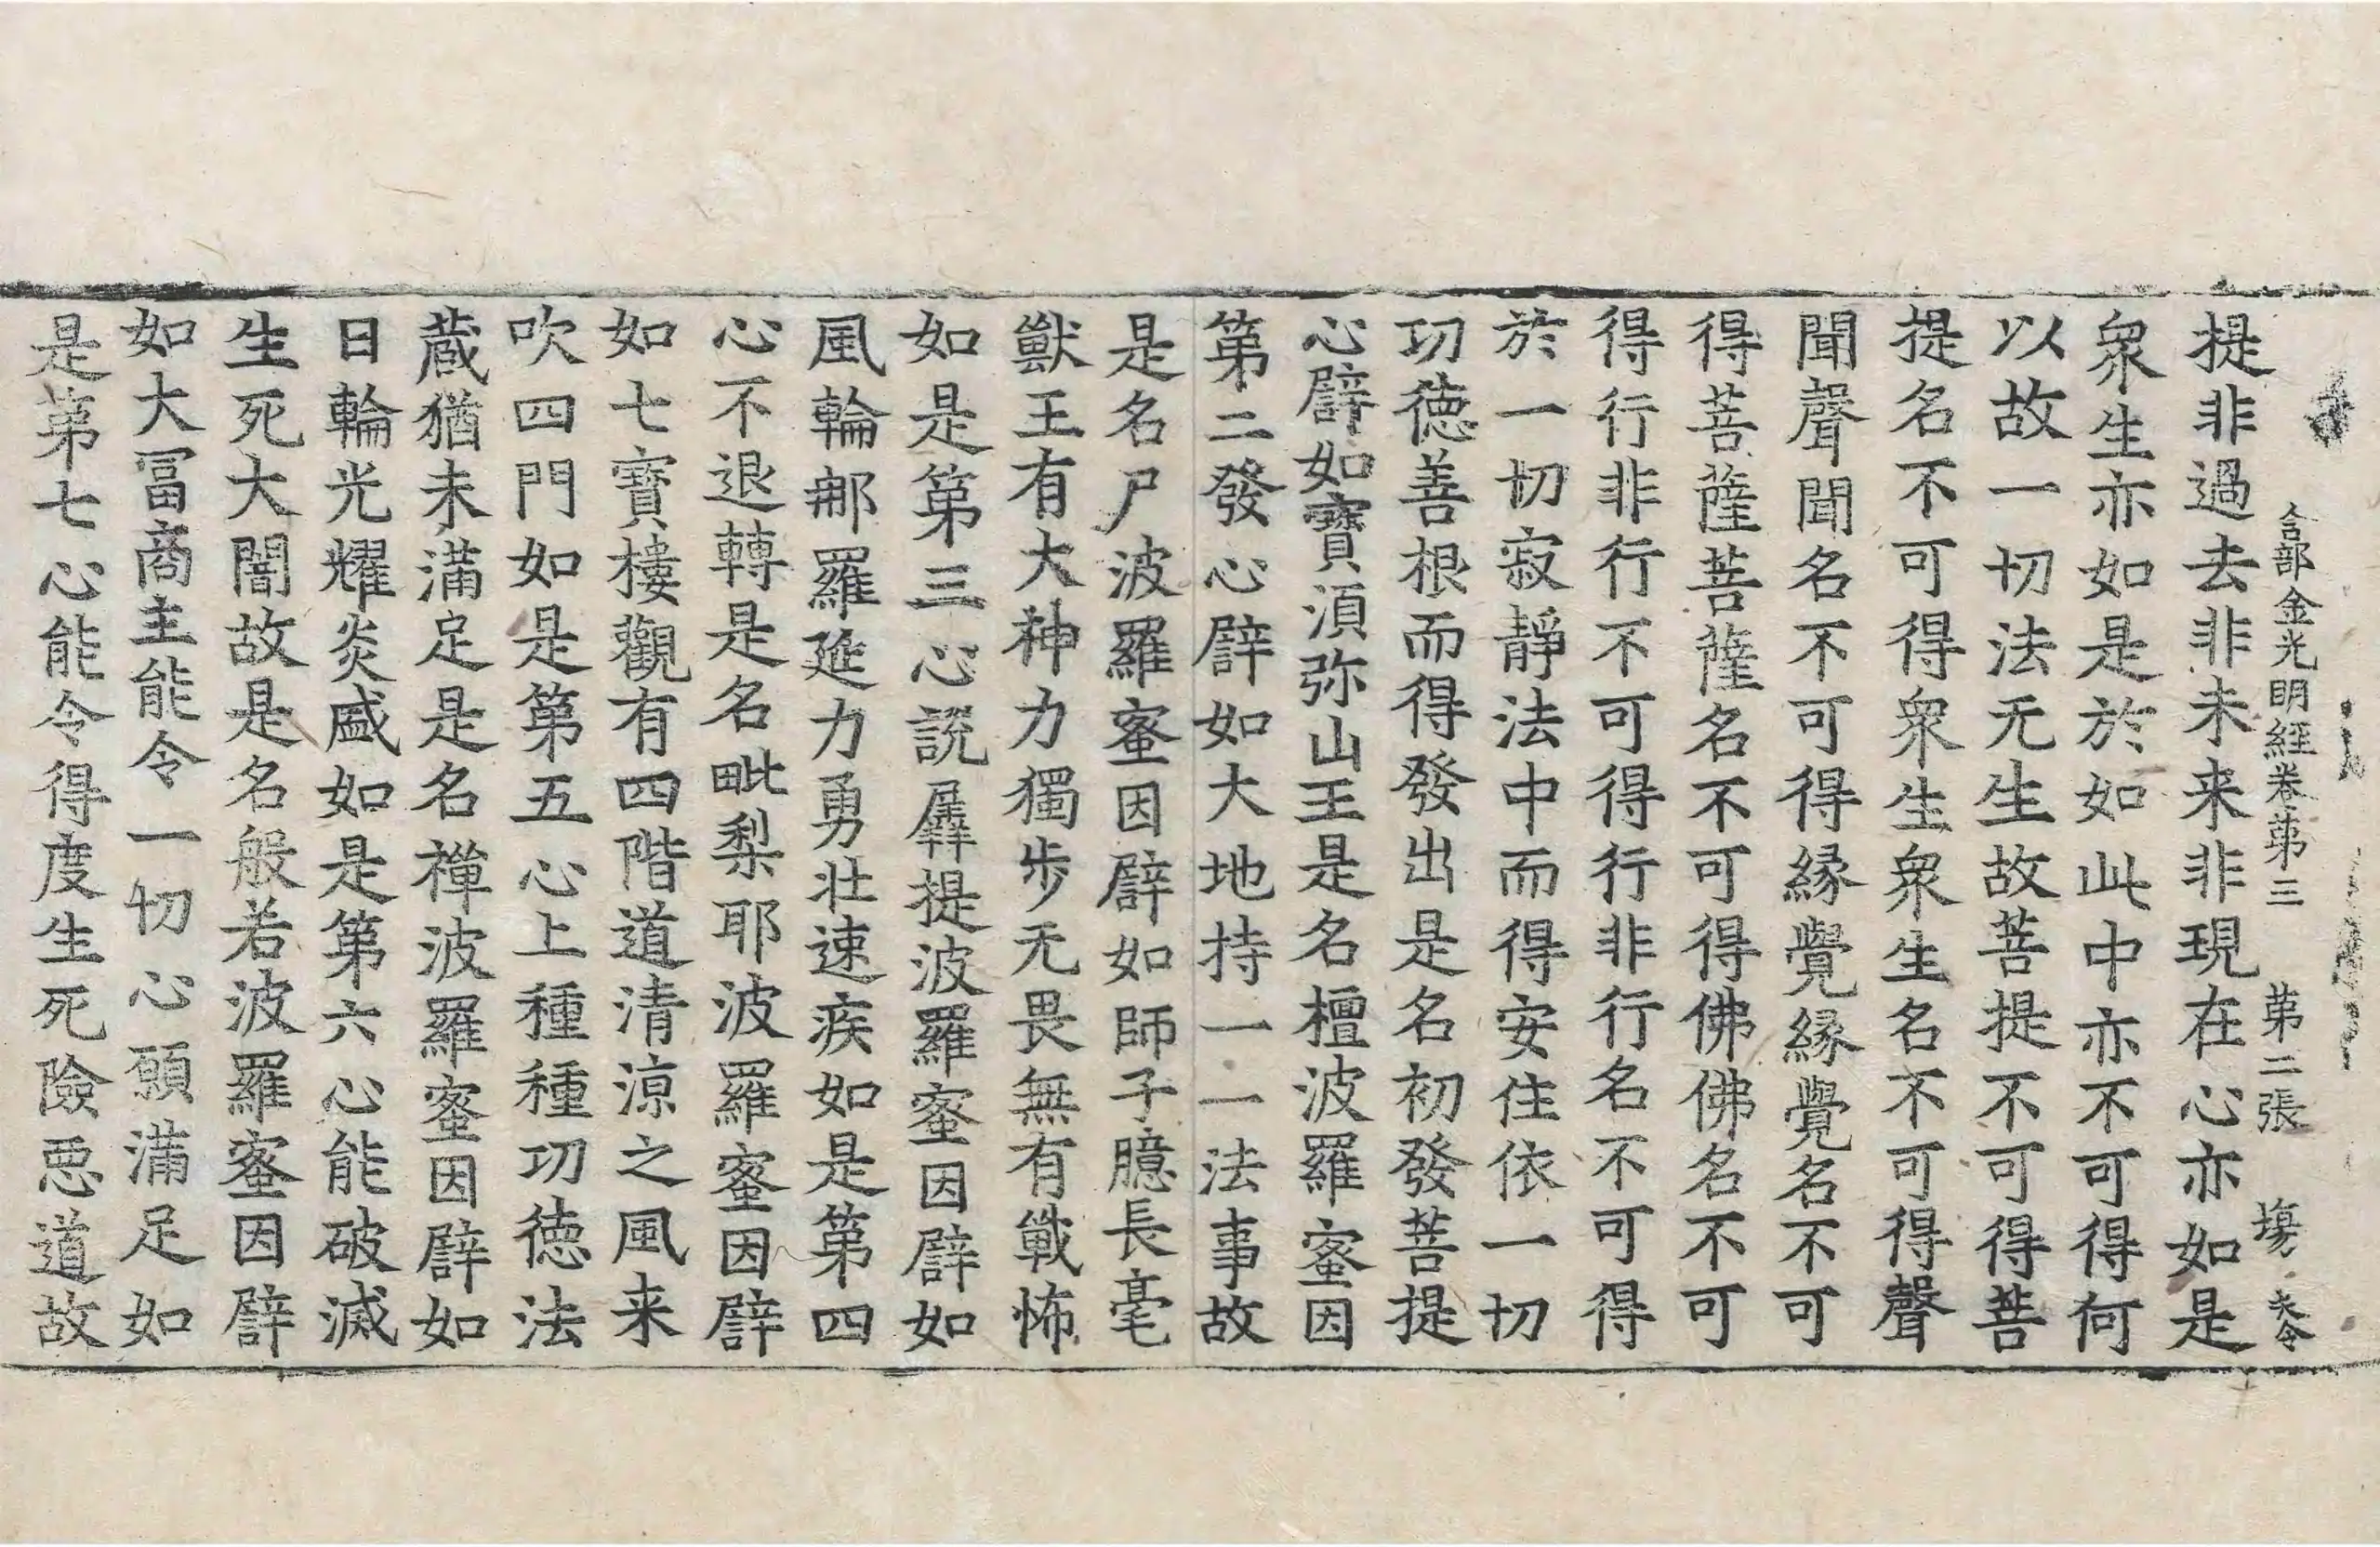 合部金光明經卷苐三 苐二張 塲
提非過去非未来非現在心亦如是
衆生亦如是於如此中亦不可得何
以故一切法无生故菩提不可得菩
提名不可得衆生衆生名不可得聲
聞聲聞名不可得縁覺縁覺名不可
得菩薩菩薩名不可得佛佛名不可
得行非行不可得行非行名不可得
於一切寂靜法中而得安住依一切
功徳善根而得發出是名初發菩提
心譬如寶湏弥山王是名檀波羅蜜因
第二發心譬如大地持一一法事故
是名尸波羅蜜因譬如師子臆長毫
獸王有大神力獨步无畏無有戰怖
如是第三心說羼提波羅蜜因譬如
風輪那羅延力勇壮速疾如是第四
心不退轉是名毗梨耶波羅蜜因譬
如七寶樓觀有四階道清涼之風来
吹四門如是第五心上種種功徳法
蔵猶未滿足是名禪波羅蜜因譬如
日輪光耀炎盛如是第六心能破滅
生死大闇故是名般若波羅蜜因譬
如大冨商主能令一切心願滿足如
是苐七心能令得度生死險惡道故